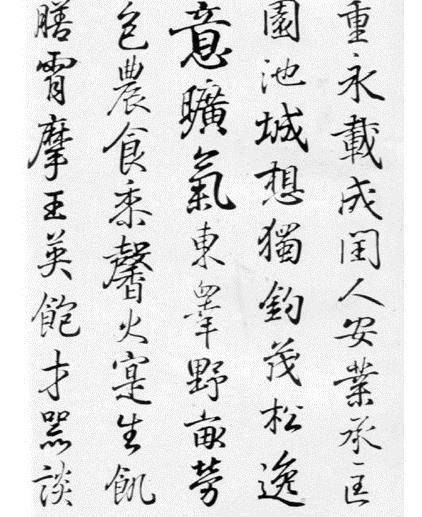 重永載成閏人安業承匡
園池城想獨鈞茂松逸
意曠氣東皋野畝勞
色農食黍馨火寔生飢
膳霄摩王英飽才器談